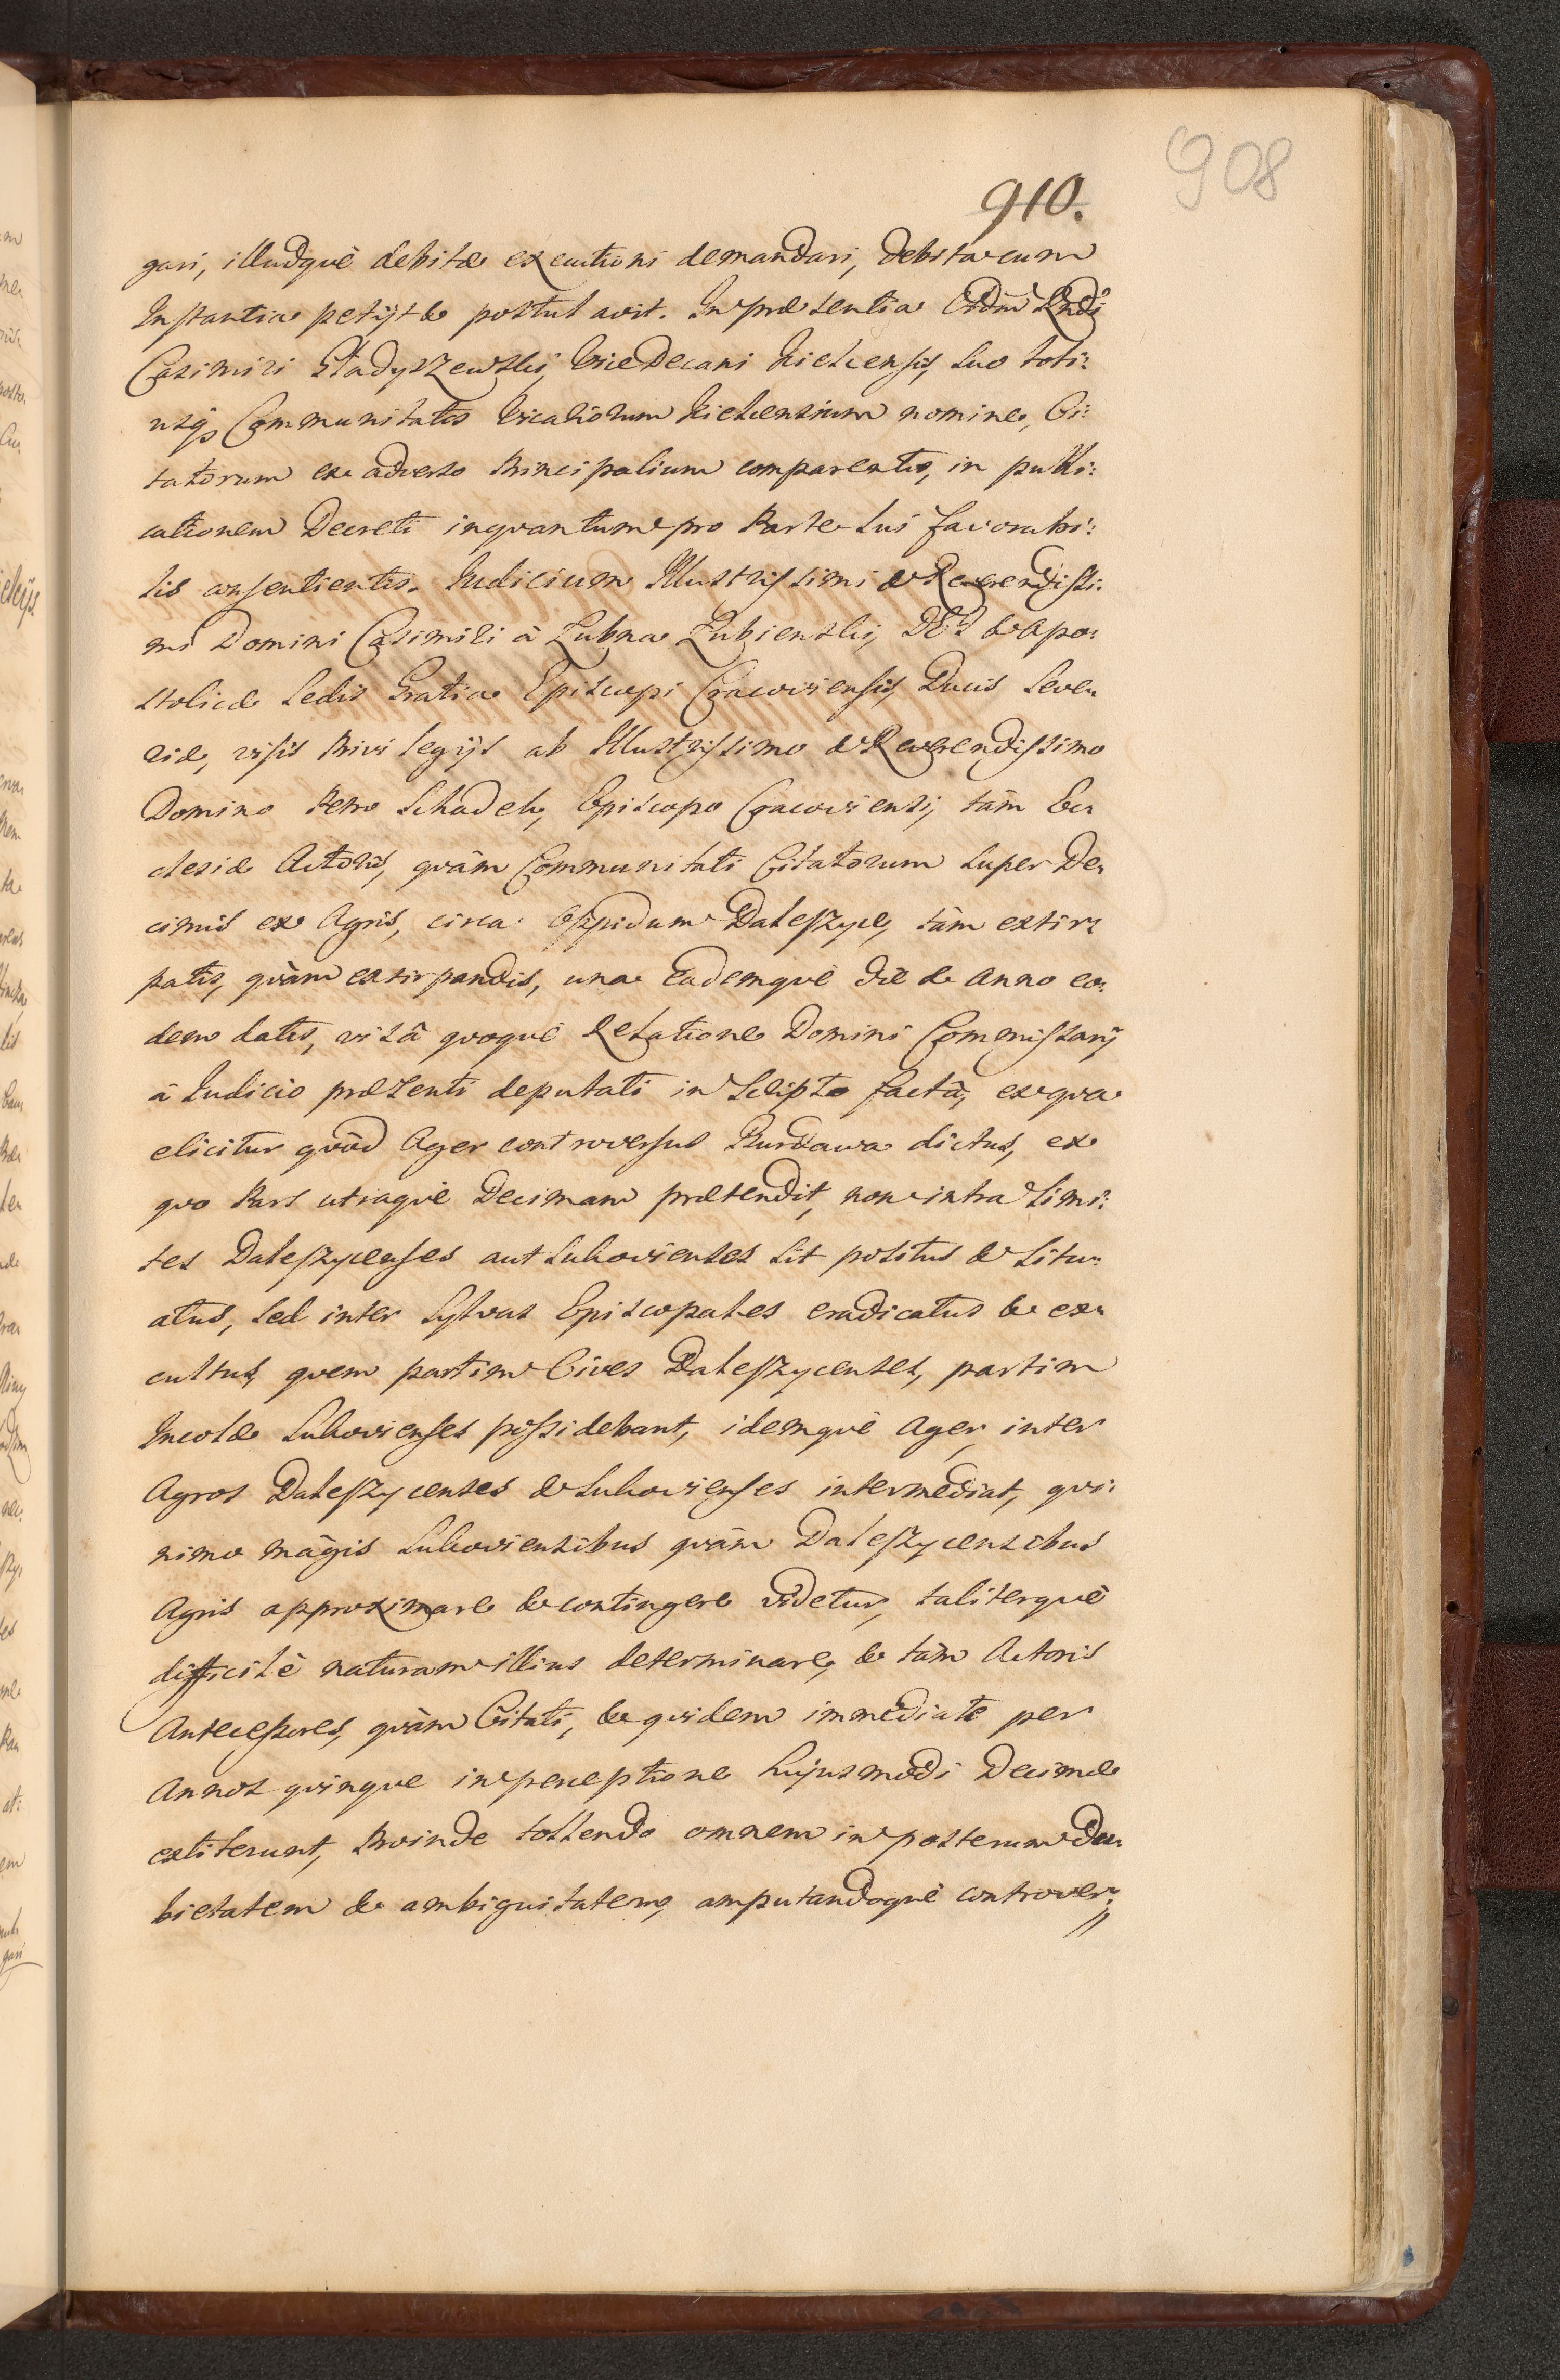 908
910.
gari, illudquè debitæ executioni demandari, debita cum
Instantia petijt & postulavit. In præsentia Adm Rndi
Casimiri Gładyszewski, ViceDecani Kielcensis, suo toti:
usq; Communitatis Vicariorum Kielcensium nomine, Ci:
tatorum ex adverso Principalium comparentis, in publi:
cationem Decreti inquantum pro Parte sui favorabi:
lis consentientis. Judicium Illustrissimi & Reverendissi:
mi Domini Casimiri à Łubna Łubienski, DEI & Apo:
stolicæ Sedis Gratia Episcopi Cracoviensis, Ducis Seve:
riæ, visis Privilegijs ab Illustrissimo & Reverendissimo
Domino Petro Schadek, Episcopo Cracoviensi, tàm Ec:
clesiæ Actoris, quàm Communitati Citatorum super De:
cimis ex Agris, circa Oppidum Daleszyce, tàm extir:
patis, quàm extirpandis, una eademquè die & Anno eo:
dem datis, visâ quoquè Relatione Domini Commissarij
à Judicio præsenti deputati in Scripto factâ, ex qua
elicitur quòd Ager controversus Burdawa dictus, ex
quo Pars utraquè Decimam prætendit, non intra Limi:
tes Daleszycenses aut Sukovienses sit positus & situ:
atus, sed inter Sylvas Episcopales eradicatus & ex:
cultus, quem partim Cives Daleszycenses, partim
Incolæ Sukovienses possidebant, idemquè Ager, inter
Agros Daleszycenses & Sukovienses intermediat, qui:
nimo màgis Sukoviensibus quàm Daleszycensibus
Agris approximare & contingere videtur, taliterquè
difficilè naturam illius determinare, & tàm Actoris
Antecessores, quàm Citati, & quidem immediatè per
Annos quinque in perceptione hujusmodi Decimæ
extiterunt, Proinde tollendo omnem in posterum du:
bietatem & ambiguitatem, amputandoquè controver: